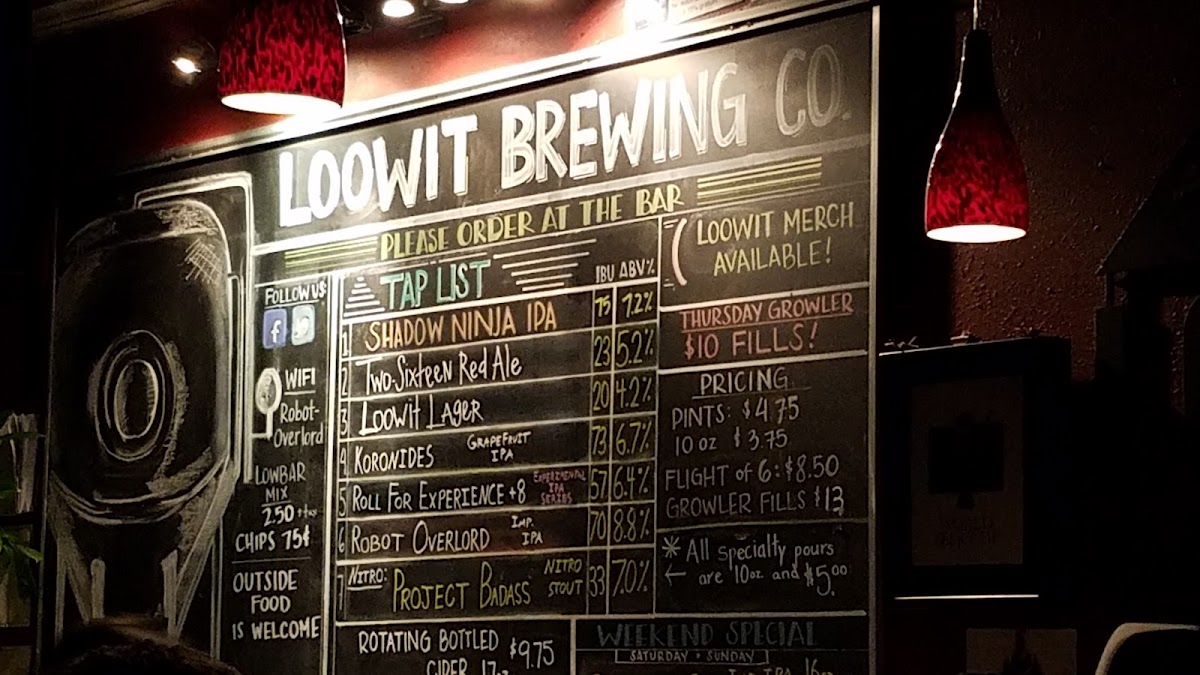 LOOWIT BREWING CO.
PLEASE ORDER AT THE BAR
FOLLOW US
f
WIFI
Robot-
Overlord
LOWBAR
MIX
2.50
CHIPS 75¢
OUTSIDE
FOOD
IS WELCOME
TAP LIST IBU ABV%
1 SHADOW NINJA IPA 75 7.2%
2 Two-Sixteen Red Ale 23 5.2%
3 Loowit Lager 20 4.2%
4 KORONIDES GRAPEFRUIT IPA 73 6.7%
5 ROLL FOR EXPERIENCE +8 EXPERIMENTAL IPA SERIES 57 6.4%
6 ROBOT OVERLORD IMP. IPA 70 8.8%
7 NITRO: PROJECT BADASS NITRO STOUT 33 7.0%
ROTATING BOTTLED $9.75
CIDER
LOOWIT MERCH
AVAILABLE!
THURSDAY GROWLER
$10 FILLS!
PRICING
PINTS: $4.75
10 oz $3.75
FLIGHT of 6: $8.50
GROWLER FILLS $13
* All specialty pours
← are 10oz and $5.00
WEEKEND SPECIAL
SATURDAY • SUNDAY